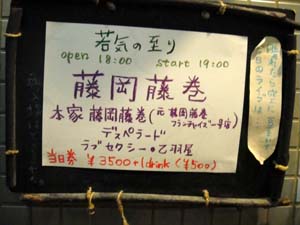 若気の至り
open 18:00 start 19:00
藤岡藤巻
本家 藤岡藤巻(元 藤岡藤巻フランチャイズ一号店)
デスペラード
ラブセクシー・乙羽屋
当日券 ¥3500+1drink(¥500)
本日のライブは…